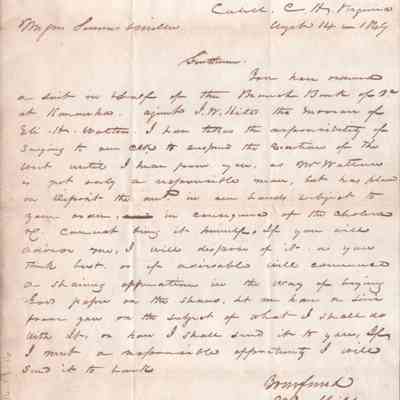 Cabell C. H. Virginia
August 14 1849
Messrs Summers & Miller
Gentlemen
You have issued
a suit in behalf of the Branch Bank of Va
at Kanawha. against J. W. Hite the
Eli H. I have taken the responsibility of
saying to our Clk to suspend the execution of the
writ until I hear from you, as Mr
is not only a responsible man, but has placed
on deposit the amt in our hands subject to
your order, in consequence of the Cholera
&c. cannot bring it himself, If you will
advise me, I will dispose of it as you
think best. or if advisable will commence
a shaving operation in the way of buying
Good paper on the shave. Let me have a line
from you on the subject of what I shall do
with it, or how I shall send it to you, If
I meet a responsible opportunity I will
send it to bank